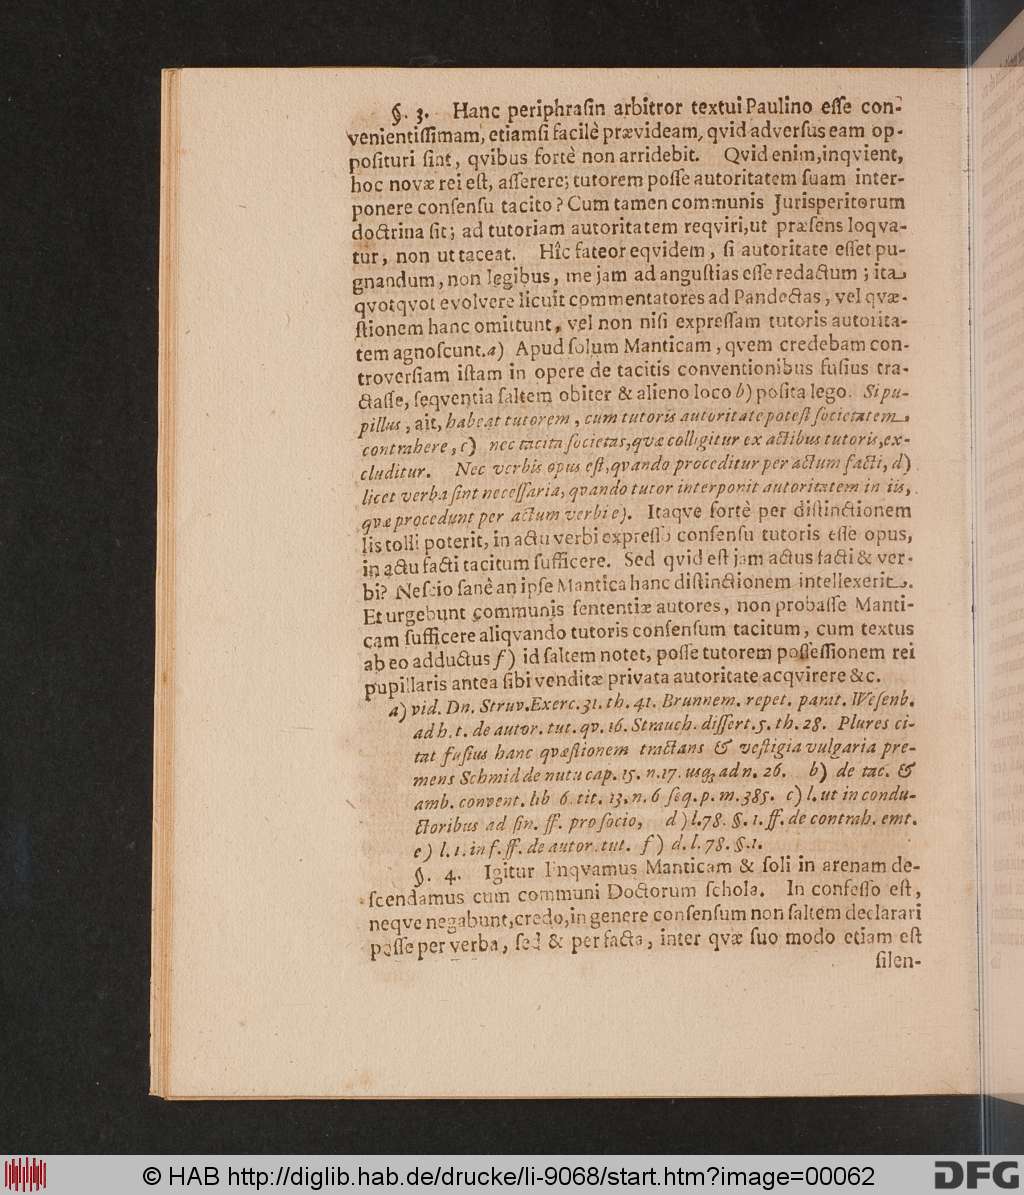 §. 3. Hanc periphrasin arbitror textui Paulino esse con-
venientissimam, etiamsi facilè prævideam, qvid adversus eam op-
posituri sint, qvibus fortè non arridebit. Qvid enim, inqvient,
hoc novæ rei est, asserere; tutorem posse autoritatem suam inter-
ponere consensu tacito? Cum tamen communis Jurisperitorum
doctrina sit; ad tutoriam autoritatem reqviri, ut præsens loqva-
tur, non ut taceat. Hîc fateor eqvidem, si autoritate esset pu-
gnandum, non legibus, me jam ad angustias esse redactum; ita
qvotqvot evolvere licuit commentatores ad Pandectas, vel qvæ-
stionem hanc omittunt, vel non nisi expressam tutoris autorita-
tem agnoscunt. a) Apud solum Manticam, qvem credebam con-
troversiam istam in opere de tacitis conventionibus fusius tra-
ctasse, seqventia saltem obiter & alieno loco b) posita lego. Si pu-
pillus, ait, habeat tutorem, cum tutoris autoritate potest societatem
contrahere, c) nec tacita societas, qvæ colligitur ex actibus tutoris, ex-
cluditur. Nec verbis opus est, qvando proceditur per actum facti, d)
licet verba sint necessaria, qvando tutor interponit autoritatem in iis,
qvæ procedunt per actum verbi e). Itaqve fortè per distinctionem
lis tolli poterit, in actu verbi expresso consensu tutoris esse opus,
in actu facti tacitum sufficere. Sed qvid est jam actus facti & ver-
bi? Nescio sanè an ipse Mantica hanc distinctionem intellexerit.
Et urgebunt communis sententiæ autores, non probasse Manti-
cam sufficere aliqvando tutoris consensum tacitum, cum textus
ab eo adductus f) id saltem notet, posse tutorem possessionem rei
pupillaris antea sibi venditæ privata autoritate acqvirere &c.
a) vid. Dn. Struv. Exerc. 31. th. 41. Brunnem. repet. parat. Wesenb.
ad h. t. de autor. tut. qv. 16. Strauch. dissert. 5. th. 28. Plures ci-
tat fusius hanc qvæstionem tractans & vestigia vulgaria pre-
mens Schmid de nutu cap. 15. n. 17. usq; ad n. 26. b) de tac. &
amb. convent. lib 6. tit. 13. n. 6 seq. p. m. 385. c) l. ut in condu-
ctoribus ad fin. ff. pro socio, d) l. 78. §. 1. ff. de contrah. emt.
e) l. 1. in f. ff. de autor. tut. f) d. l. 78. §. 1.
§. 4. Igitur linqvamus Manticam & soli in arenam de-
scendamus cum communi Doctorum schola. In confesso est,
neqve negabunt, credo, in genere consensum non saltem declarari
posse per verba, sed & per facta, inter qvæ suo modo etiam est
silen-
© HAB http://diglib.hab.de/drucke/li-9068/start.htm?image=00062
DFG